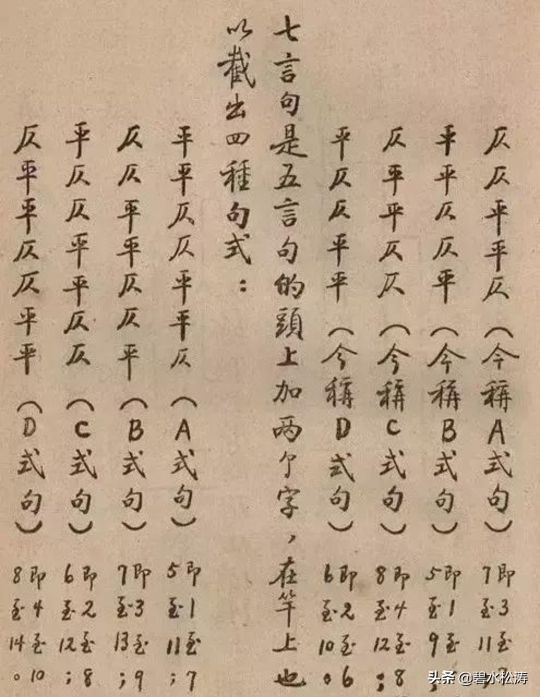 仄仄平平仄（今稱A式句）即3至
7至11
平平仄仄平（今稱B式句）即1至
5至9
仄平平仄仄（今稱C式句）即4至8
8至12；
平仄仄平平（今稱D式句）即2至6
6至10。
七言句是五言句的頭上加两个字，在竿上也
以截出四種句式：
平平仄仄平平仄（A式句）即1至7
5至11；
仄仄平平仄仄平（B式句）即3至9
7至13；
平仄仄平平仄仄（C式句）即2至8
6至12；
仄平平仄仄平平（D式句）即4至10
8至14。
头条 @碧水松涛